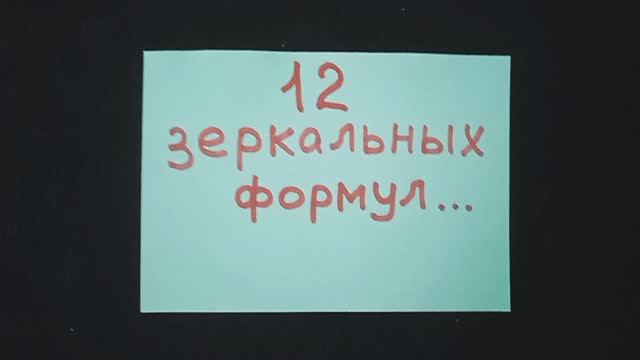 12
зеркальных
формул...